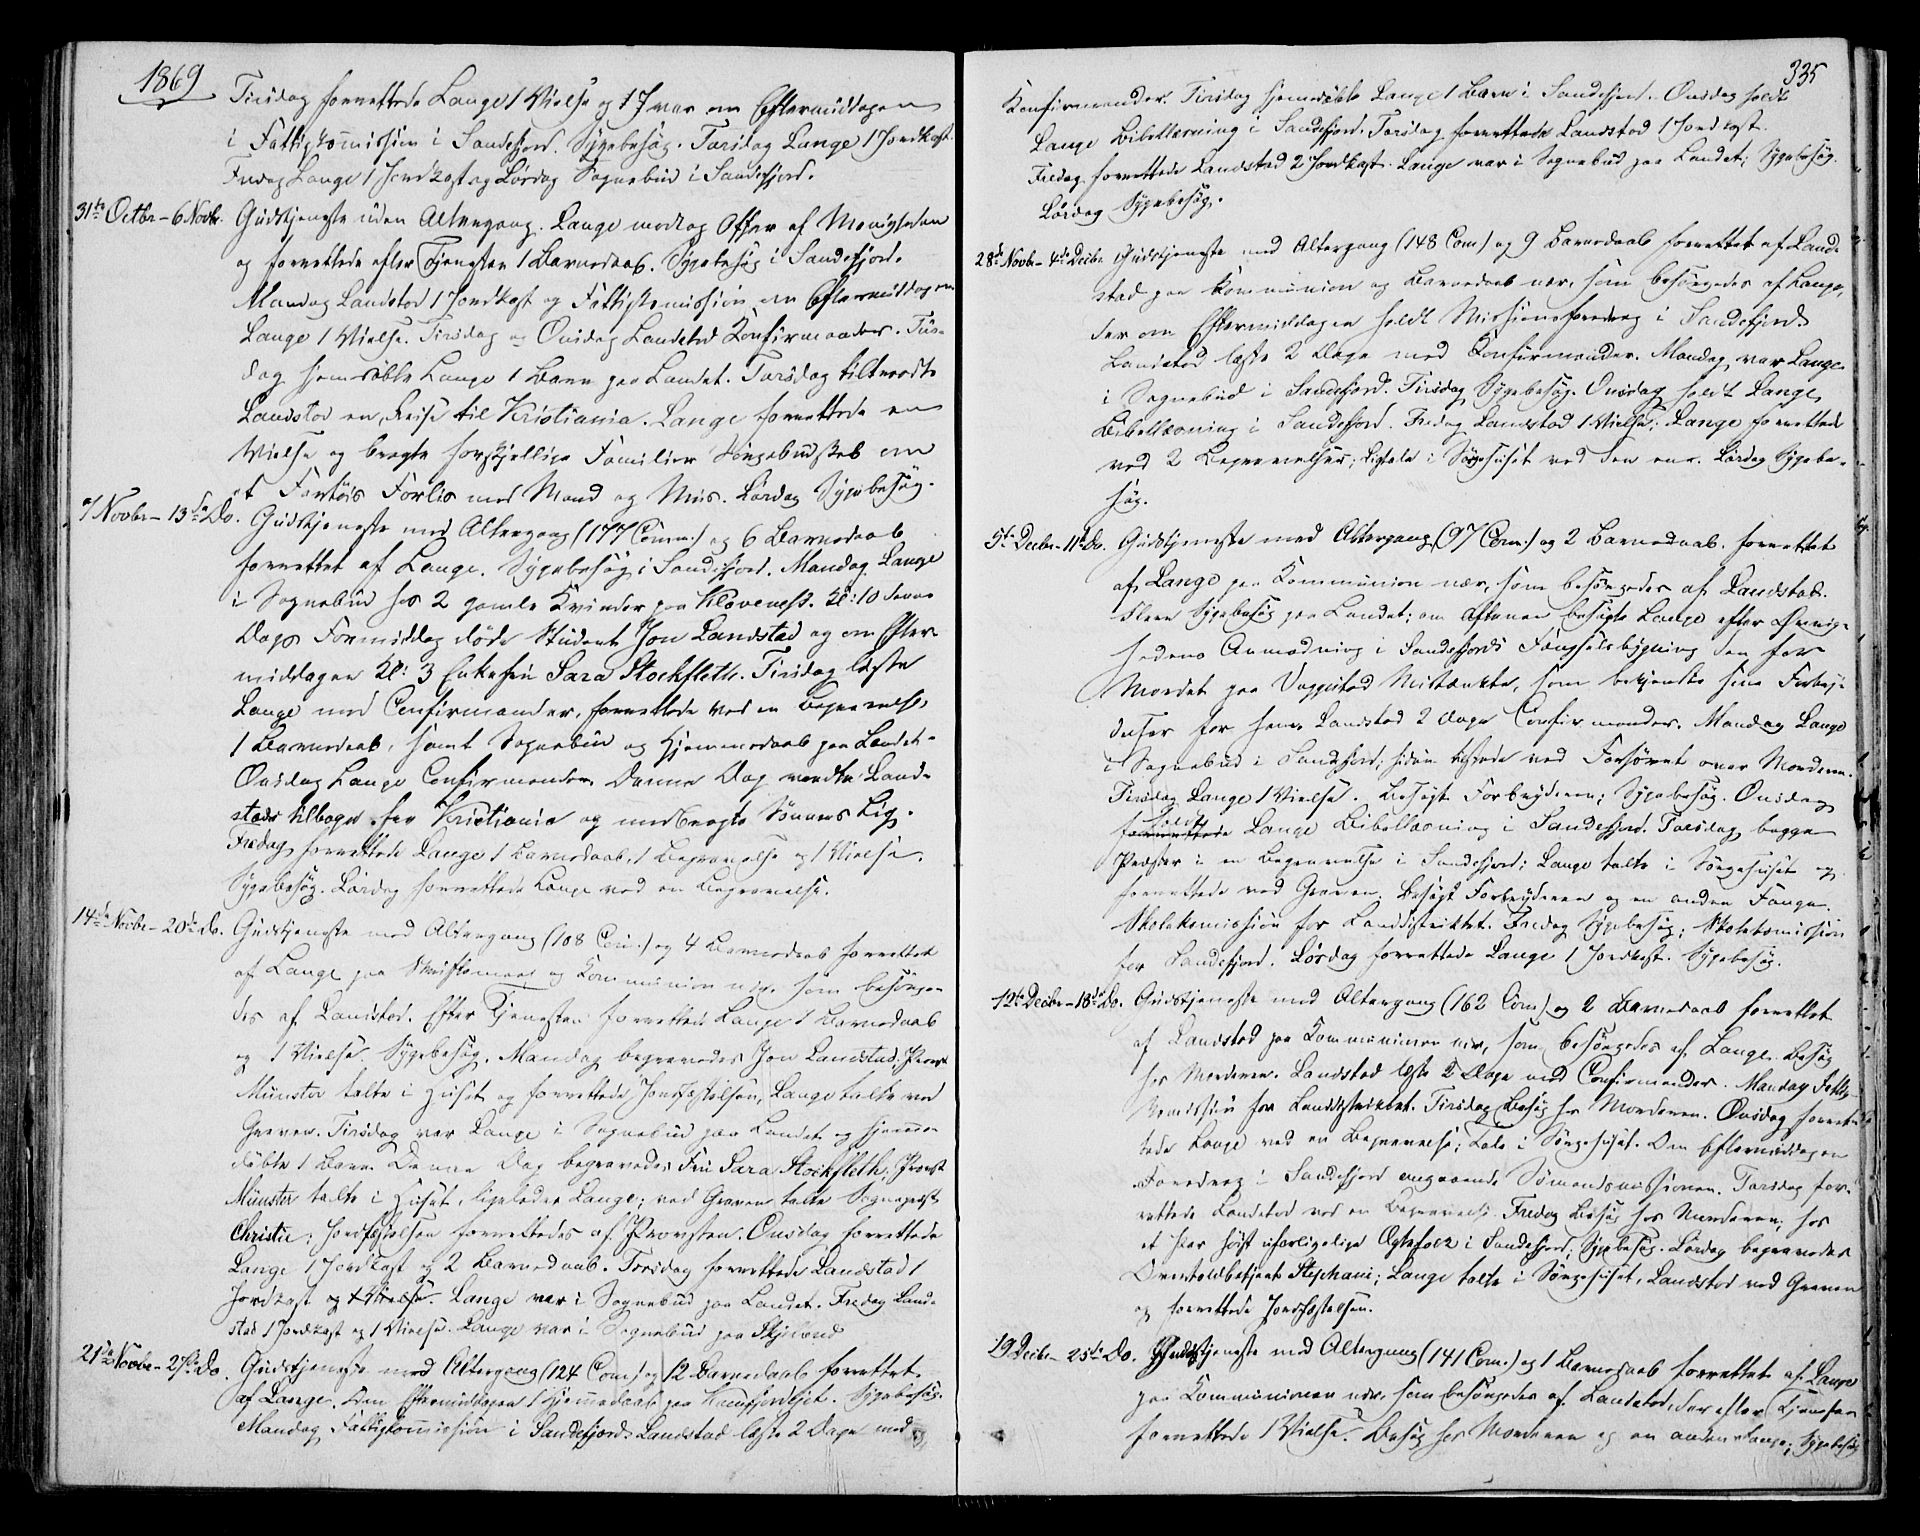 1869
Tirsdag forrettede Lange 1 Vielse og 1 J var om Eftermiddagen
i Fattigkomission i Sandefjord. Sygebesøg. Torsdag Lange 1 Jordkast.
Fredag Lange 1 Jordkast og Lørdag Sognebud i Sandefjord.
31te Octbr – 6 Novbr. Gudstjeneste uden Altergang. Lange modtog Offer af Menigheden
og forrettede efter Tjenesten 1 Barnedaab. Sygebesøg i Sandefjord.
Mandag Landstad 1 Jordkast og Fattigkomission om Eftermiddagen
Lange 1 Vielse. Tirsdag og Onsdag Landstad Konfirmander. Tirs-
dag hjemdøbte Lange 1 Barn paa Landet. Torsdag tiltraadte
Landstad en Reise til Kristiania. Lange forrettede en
Vielse og bragte forskjellige Familier Sørgebudskab om
et Fartøis Forlis med Mand og Mus. Lørdag Sygebesøg.
7 Novbr – 13de Do. Gudstjeneste med Altergang (177 Comm:) og 6 Barnedaab
forrettet af Lange. Sygebesøg i Sandefjord. Mandag Lange
i Sognebud hos 2 gamle Kvinder paa Klavenæs. Kl: 10 denne
Dags Formiddag døde Student Jon Landstad og om Efter-
middagen Kl: 3 Enkefru Sara Stockfleth. Tirsdag læste
Lange med Confirmander, forrettede ved en Begravelse,
1 Barnedaab, samt Sognebud og Hjemmedaab paa Landet.
Onsdag Lange Confirmander. Denne Dag vendte Land-
stads tilbage fra Kristiania og medbragte Sønnens Lig.
Fredag forrettede Lange 1 Barnedaab, 1 Begravelse og 1 Vielse.
Sygebesøg. Lørdag forrettede Lange ved en Begravelse.
14de Novbr – 20de Do. Gudstjeneste med Altergang (108 Com:) og 4 Barnedaab forrettet
af Lange paa Skriftemaal og Kommunion nær, som besørge-
des af Landstad. Efter Tjenesten forrettede Lange 1 Barnedaab
og 1 Vielse. Sygebesøg. Mandag begravedes Jon Landstad. Provst
Münster talte i Huset og forrettede Jordfæstelsen, Lange talte ved
Graven. Tirsdag var Lange i Sognebud paa Landet og hjemme-
døbte 1 Barn. Denne Dag begravedes Fru Sara Stockfleth. Provst
Münster talte i Huset, ligeledes Lange; ved Graven talte Sognepræst
Christie; Jordfæstelsen forrettedes af Provsten. Onsdag forrettede
Lange 1 Jordkast og 2 Barnedaab. Torsdag forrettede Landstad 1
Jordkast og 1 Vielse. Lange var i Sognebud paa Landet. Fredag Land-
stad 1 Jordkast og 1 Vielse. Lange var i Sognebud paa Skjelland
21de Novbr – 27de Do. Gudstjeneste med Altergang (124 Com:) og 12 Barnedaab forrettet
af Lange. Om Eftermiddagen 1 Hjemmedaab paa. Sygebesøg.
Mandag Fattigkomission i Sandefjord. Landstad læste 2 Dage med
335
Konfirmander. Tirsdag hjemdøbte Lange 1 Barn i Sandefjord. Onsdag holdt
Lange Bibellæsning i Sandefjord. Torsdag forrettede Landstad 1 Jordkast.
Fredag forrettede Landstad 2 Jordkast. Lange var i Sognebud paa Landet; Sygebesøg.
Lørdag Sygebesøg.
28de Novbr – 4de Decbr. Gudstjeneste med Altergang (148 Com) og 9 Barnedaab forrettet af Land-
stad paa Kommunion og Barnedaab nær, som besørgedes af Lange,
der om Eftermiddagen holdt Missionsforedrag i Sandefjord.
Landstad læste 2 Dage med Confirmander. Mandag var Lange
i Sognebud i Sandefjord. Tirsdag Sygebesøg. Onsdag holdt Lange
Bibellæsning i Sandefjord. Fredag Landstad 1 Vielse; Lange forrettede
ved 2 Begravelser; Ligtale i Sørgehuset ved den ene. Lørdag Sygebe-
søg.
5te Decbr – 11te Do. Gudstjeneste med Altergang (97 Com:) og 2 Barnedaab. forrettet
af Lange paa Kommunion nær, som besørgedes af Landstad.
Flere Sygebesøg paa Landet; om Aftenen besøgte Lange efter Øvrig-
hedens Anmodning i Sandefjords Fængselsbygning den for
Mordet paa Vaggestad Mistænkte, som bekjendte sine Forbry-
delser for ham. Landstad 2 Dage Confirmander. Mandag Lange
i Sognebud i Sandefjord; siden tilstede ved Forhøret over Morderen.
Tirsdag Lange 1 Vielse. Besøgt Forbryderen; Sygebesøg. Onsdag
holdt
forrettede Lange Bibellæsning i Sandefjord. Torsdag begge
Præster i en Begravelse i Sandefjord; Lange talte i Sørgehuset og
forrettede ved Graven. Besøgt Forbryderen og en anden Fange.
Skolekomission for Landdistriktet. Fredag Sygebesøg; Skolekomission
for Sandefjord. Lørdag forrettede Lange 1 Jordkast. Sygebesøg.
12te Decbr – 18de Do. Gudstjeneste med Altergang (162 Com) og 2 Barnedaab forrettet
af Landstad paa Kommunion nær, som besørgedes af Lange. Besøg
hos Morderen. Landstad læste 2 Dage med Confirmander. Mandag Fattig-
komission for Landdistriktet. Tirsdag Besøg hos Morderen. Onsdag forret-
tede Lange ved en Begravelse; Tale i Sørgehuset. Om Eftermiddagen
Foredrag i Sandefjord angaaende Sømandsmissionen. Torsdag for-
rettede Landstad ved en Begravelse. Fredag Besøg hos Morderen, hos
et Par høist uforligelige Ægtefolk i Sandefjord; Sygebesøg. Lørdag begravedes
Overtoldbetjent Stephani; Lange talte i Sørgehuset, Landstad ved Graven
og forrettede Jordfæstelsen.
19 Decbr – 25de Do. Gudstjeneste med Altergang (141 Com:) og 1 Barnedaab forrettet af Lange
paa Kommunion nær, som besørgedes af Landstad, der efter Tjenesten
forrettede 1 Vielse. Besøg hos Morderen og en anden Fange; Sygebesøg